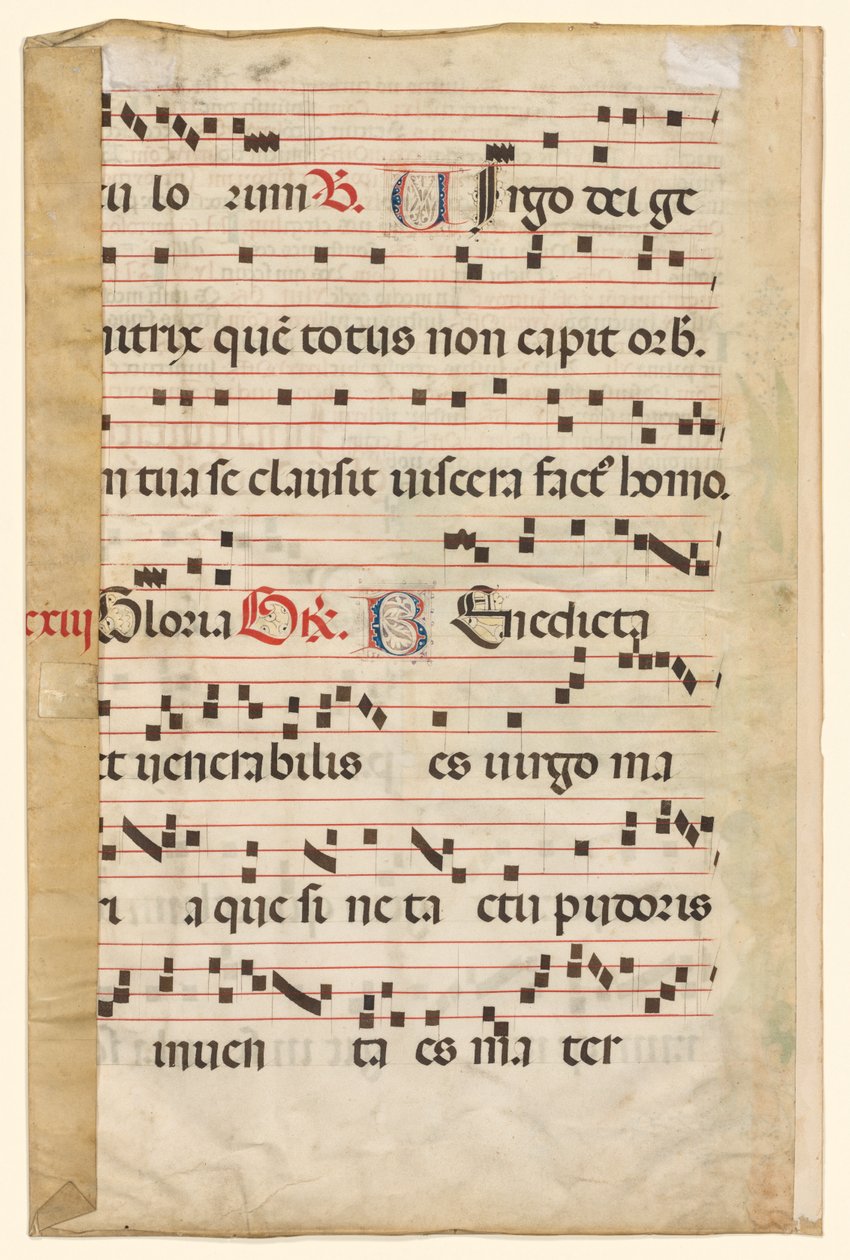 cu lo rum ℟. UIrgo dei ge
nitrix quē totus non capit orb̄.
in tua se clausit uiscera fact⁹ homo.
cxiij Gloria Gr̄. B Enedicta
et uenerabilis es uirgo ma
ri a que si ne ta ctu pudoris
inuen ta es ma ter